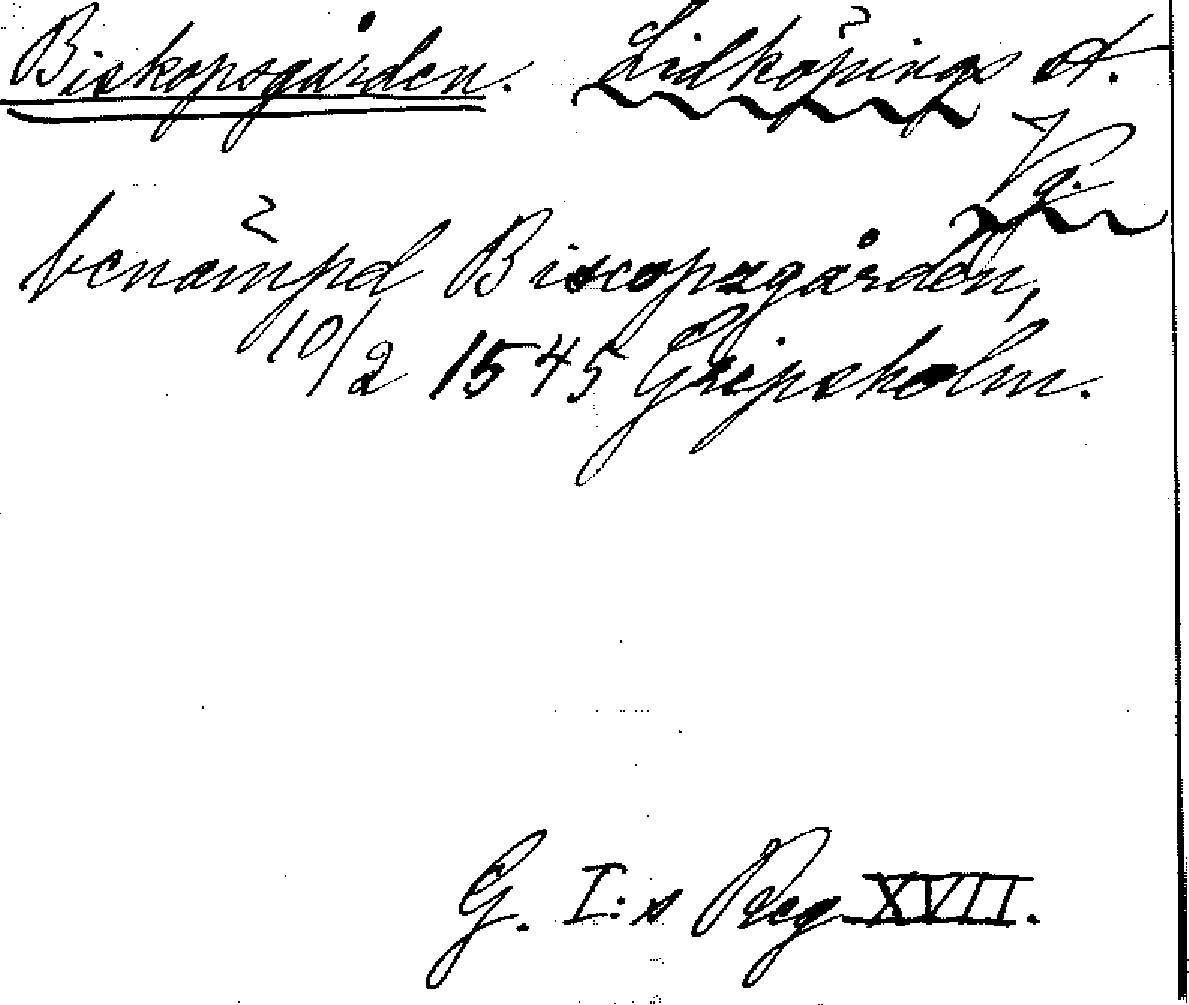 Biskopsgården. Lidköpings st.
Vg.
benämpd Biscopsgården,
10/2 1545 Gripsholm.
G. I:s Reg XVII.